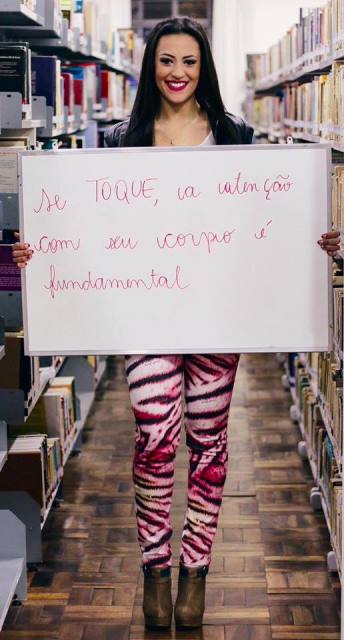 Se TOQUE, a atenção
com seu corpo é
fundamental